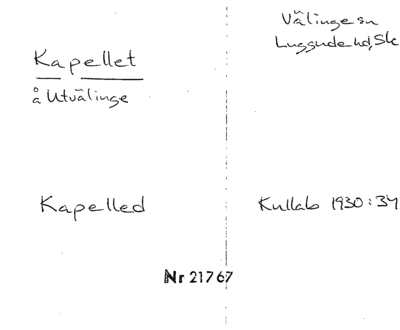 Kapellet
å Utvälinge
Kapelled
Välinge sn
Luggude hd, Sk
Kullab 1930:34
Nr 21767